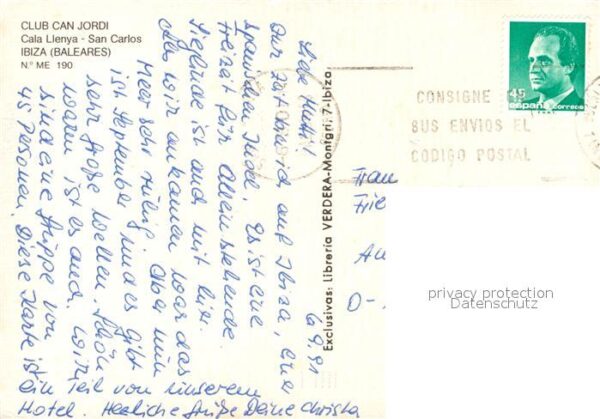 CLUB CAN JORDI
Cala Llenya - San Carlos
IBIZA (BALEARES)
N.° ME 190
6.9.91
Liebe Mutti!
Der Zeit bin ich auf Ibiza, eine
spanischen Insel. Es ist eine
Freizeit für Alleinstehende.
Sieglinde ist auch mit hier.
Als wir ankamen war das
Meer sehr ruhig. Aber nun
ist September und es gibt
sehr große Wellen. Schön
warm ist es auch. Wir
sind eine Gruppe von
45 Personen. Diese Karte ist
ein Teil von unserem
Hotel. Herzliche Grüße Deine Christa
Exclusivas: Libreria VERDERA-Montgri, 7-Ibiza
45
españa correos
CONSIGNE
SUS ENVIOS EL
CODIGO POSTAL
Frau
Frie
D-
privacy protection
Datenschutz